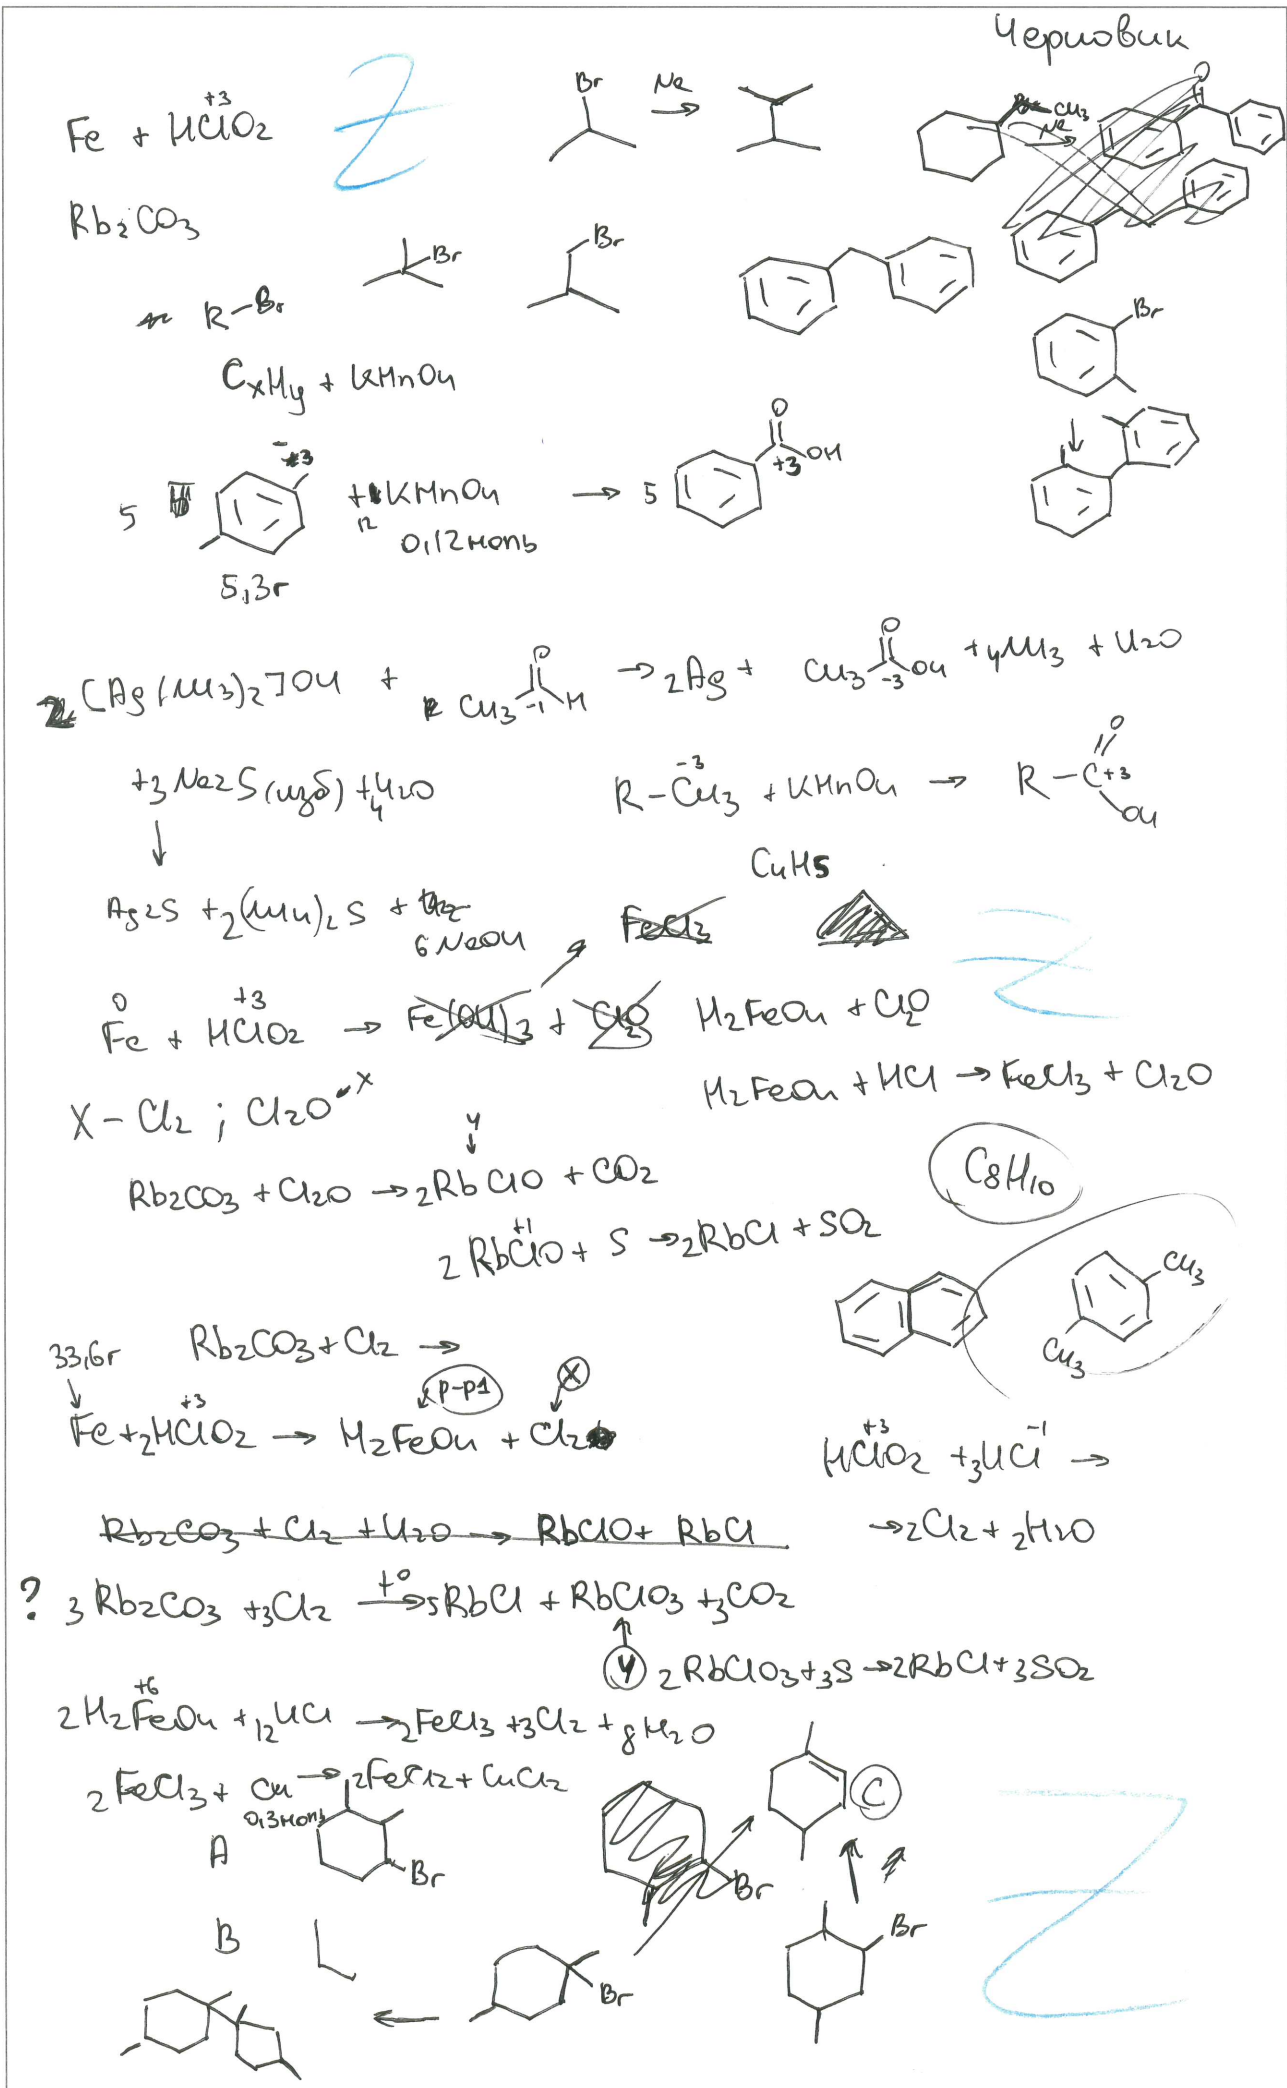 Черновик
Fe + HClO2 +3
Br Na →
CH3 Na O
Rb2CO3
Br Br
R-Br
Br
CxHy + KMnO4
5 -3 + 12 KMnO4 → 5 O OH +3
0,12 моль
5,3г
2[Ag(NH3)2]OH + CH3 O -1 H → 2Ag + CH3 O -3 OH + 4NH3 + H2O
+3Na2S(изб) + 4H2O
↓
R-CH3 -3 + KMnO4 → R-C+3 O OH
C4H5
Ag2S + 2(NH4)2S + 6NaOH
FeCl3
Fe 0 + HClO2 +3 → Fe(OH)3 + Cl2O H2FeO4 + Cl2O
H2FeO4 + HCl → FeCl3 + Cl2O
X - Cl2 ; Cl2O X
Y
↓
Rb2CO3 + Cl2O → 2RbClO + CO2
C8H10
2RbClO +1 + S → 2RbCl + SO2
CH3
CH3
Rb2CO3 + Cl2 →
33,6г
↓
p-p1 X
Fe + 2HClO2 +3 → H2FeO4 + Cl2
HClO2 +3 + 3HCl -1 →
→ 2Cl2 + 2H2O
Rb2CO3 + Cl2 + H2O → RbClO + RbCl
? 3Rb2CO3 + 3Cl2 t° → 5RbCl + RbClO3 + 3CO2
↑
Y 2RbClO3 + 3S → 2RbCl + 3SO2
2H2FeO4 +6 + 12HCl → 2FeCl3 + 3Cl2 + 8H2O
2FeCl3 + Cu → 2FeCl2 + CuCl2
0,3моль
C
A Br
Br
B Br
Br